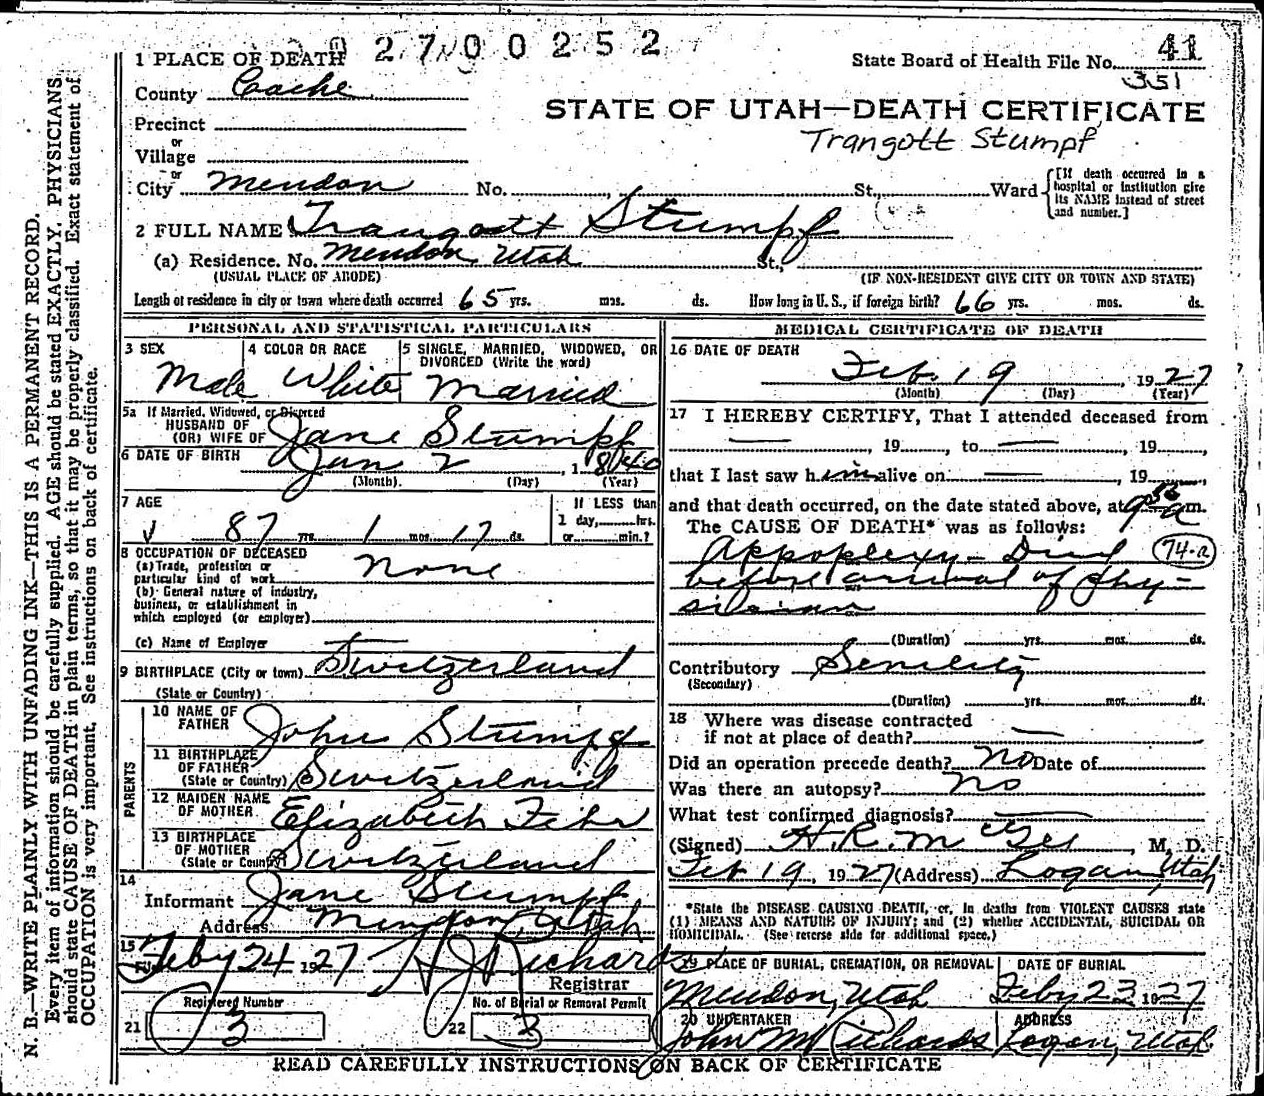 2 7 0 0 2 5 2
1 PLACE OF DEATH
State Board of Health File No. 41
351
County Cache
STATE OF UTAH—DEATH CERTIFICATE
Precinct
Trangott Stumpf
or
Village
or
City Mendon No. St., Ward
[If death occurred in a hospital or institution give its NAME instead of street and number.]
2 FULL NAME Trangott Stumpf
(a) Residence. No. Mendon, Utah St.,
(USUAL PLACE OF ABODE) (IF NON-RESIDENT GIVE CITY OR TOWN AND STATE)
Length of residence in city or town where death occurred 65 yrs. mos. ds. How long in U. S., if foreign birth? 66 yrs. mos. ds.
PERSONAL AND STATISTICAL PARTICULARS
3 SEX 4 COLOR OR RACE 5 SINGLE, MARRIED, WIDOWED, OR
DIVORCED (Write the word)
Male White Married
5a If Married, Widowed, or Divorced
HUSBAND OF
(OR) WIFE OF Jane Stumpf
6 DATE OF BIRTH Jan 2, 1840
(Month) (Day) (Year)
7 AGE If LESS than
87 yrs. 1 mos. 17 ds. 1 day, hrs.
or min.?
8 OCCUPATION OF DECEASED
(a) Trade, profession or
particular kind of work none
(b) General nature of industry,
business, or establishment in
which employed (or employer)
(c) Name of Employer
9 BIRTHPLACE (City or town) Switzerland
(State or Country)
PARENTS
10 NAME OF
FATHER John Stumpf
11 BIRTHPLACE
OF FATHER
(State or Country) Switzerland
12 MAIDEN NAME
OF MOTHER Elizabeth
13 BIRTHPLACE
OF MOTHER
(State or Country) Switzerland
14
Informant Jane Stumpf
Address Mendon, Utah
15
Feby 24 1927 H J Richards
Registrar
Registered Number No. of Burial or Removal Permit
21 3 22 3
MEDICAL CERTIFICATE OF DEATH
16 DATE OF DEATH
Feb. 19, 1927
(Month) (Day) (Year)
17 I HEREBY CERTIFY, That I attended deceased from
— , 19 , to — , 19 ,
that I last saw him alive on — , 19 ,
and that death occurred, on the date stated above, at 9 a m.
The CAUSE OF DEATH* was as follows:
Appoplexy — Died 74-a
before arrival of phy-
sician
(Duration) yrs. mos. ds.
Contributory Senility
(Secondary)
(Duration) yrs. mos. ds.
18 Where was disease contracted
if not at place of death? —
Did an operation precede death? no Date of
Was there an autopsy? no
What test confirmed diagnosis? —
(Signed) H. R. McGee, M. D.
Feb 19, 1927 (Address) Logan, Utah
*State the DISEASE CAUSING DEATH, or, in deaths from VIOLENT CAUSES state
(1) MEANS AND NATURE OF INJURY; and (2) whether ACCIDENTAL, SUICIDAL OR
HOMICIDAL. (See reverse side for additional space.)
19 PLACE OF BURIAL, CREMATION, OR REMOVAL DATE OF BURIAL
Mendon, Utah Feby 23 1927
20 UNDERTAKER ADDRESS
John M Richards Logan, Utah
READ CAREFULLY INSTRUCTIONS ON BACK OF CERTIFICATE
N. B.—WRITE PLAINLY WITH UNFADING INK—THIS IS A PERMANENT RECORD.
Every item of information should be carefully supplied. AGE should be stated EXACTLY. PHYSICIANS
should state CAUSE OF DEATH in plain terms, so that it may be properly classified. Exact statement of
OCCUPATION is very important. See instructions on back of certificate.